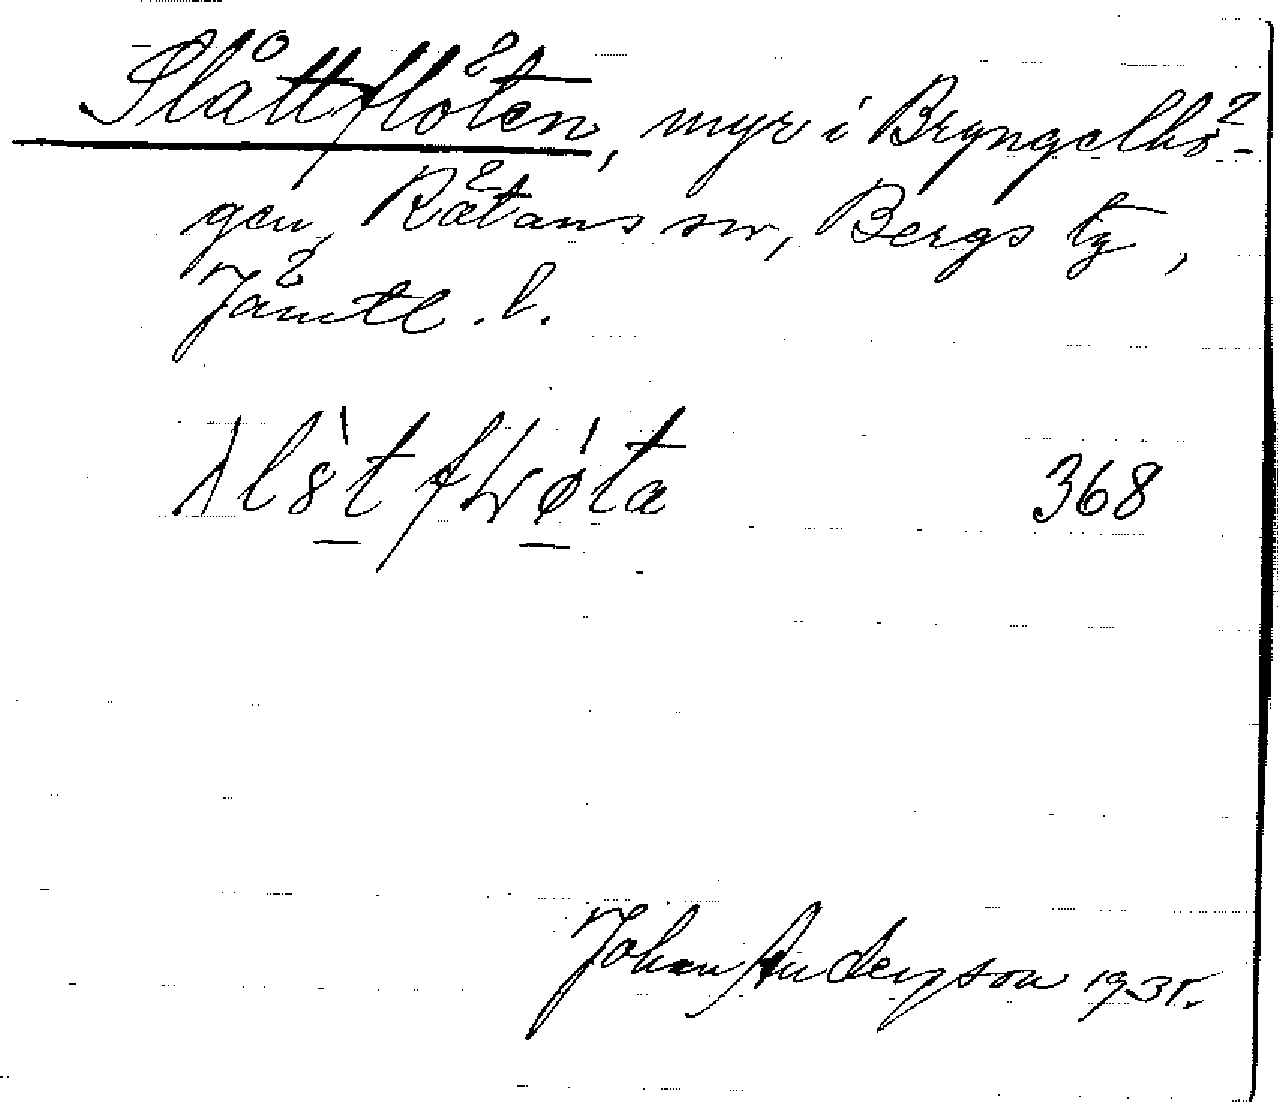 Slåttflöten, myr i Bryngelhö-
gen, Rätans sn, Bergs tg,
Jämtl. l.
368
Johan Anderson 1935.